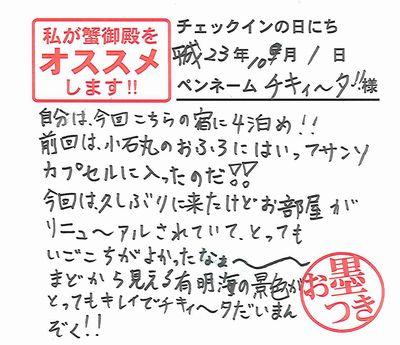 私が蟹御殿を
オススメ
します!!
チェックインの日にち
平成23年10月1日
ペンネーム チキィ～タ!!様
自分は、今回こちらの宿に4泊め!!
前回は、小石丸のおふろにはいってサンソ
カプセルに入ったのだ!!
今回は久しぶりに来たけどお部屋が
リニュ～アルされていて、とっても
いごこちがよかったなぁ～～
まどから見える有明海の景色が
とってもキレイでチキィ～タだいまん
ぞく!!
お墨つき